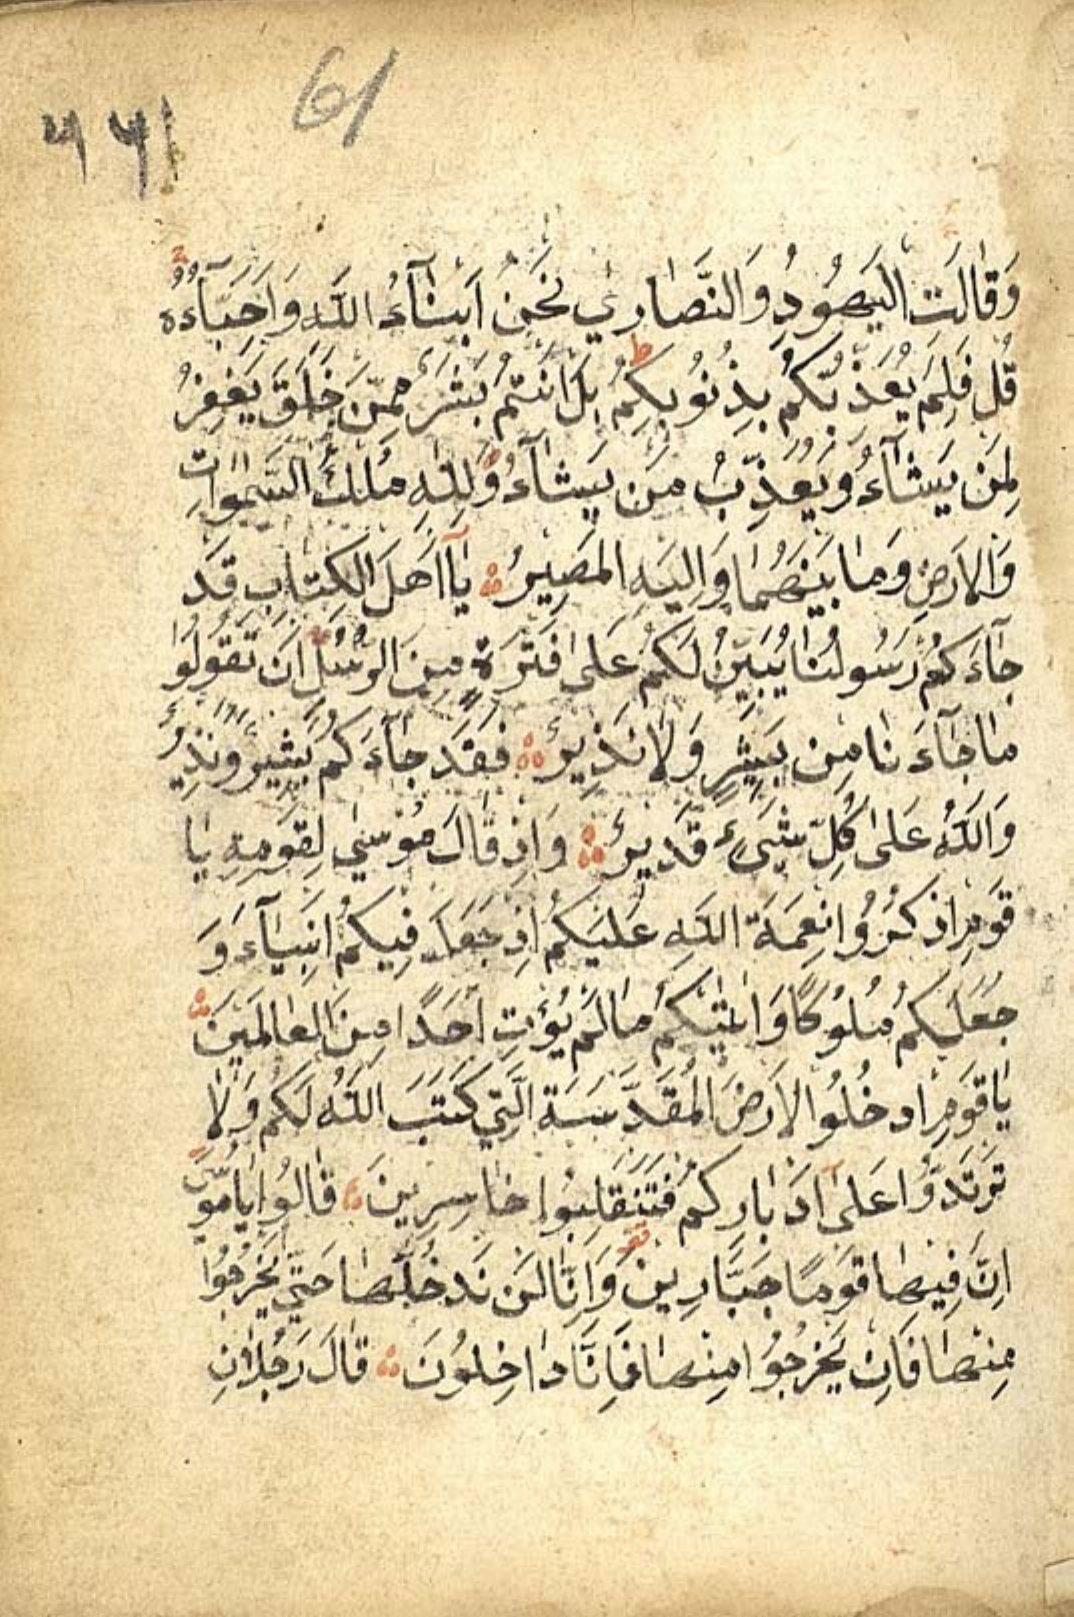 61
وَقَالَتِ الْيَهُودُ وَالنَّصَارٰي نَحْنُ اَبْنَآءُ اللّٰهِ وَاَحِبَّآءُهُ
قُلْ فَلِمَ يُعَذِّبُكُمْ بِذُنُوبِكُمْ بَلْ اَنْتُمْ بَشَرٌ مِمَّنْ خَلَقَ يَغْفِرُ
لِمَنْ يَشَآءُ وَيُعَذِّبُ مَنْ يَشَآءُ وَلِلّٰهِ مُلْكُ السَّمٰوَاتِ
وَالْاَرْضِ وَمَا بَيْنَهُمَا وَاِلَيْهِ الْمَصِيرُ يَآ اَهْلَ الْكِتَابِ قَدْ
جَآءَكُمْ رَسُولُنَا يُبَيِّنُ لَكُمْ عَلٰى فَتْرَةٍ مِنَ الرُّسُلِ اَنْ تَقُولُوا
مَا جَآءَنَا مِنْ بَشِيرٍ وَلَا نَذِيرٍ فَقَدْ جَآءَكُمْ بَشِيرٌ وَنَذِيرٌ
وَاللّٰهُ عَلٰى كُلِّ شَيْءٍ قَدِيرٌ وَاِذْ قَالَ مُوسٰي لِقَوْمِهِ يَا
قَوْمِ اذْكُرُوا نِعْمَةَ اللّٰهِ عَلَيْكُمْ اِذْ جَعَلَ فِيكُمْ اَنْبِيَآءَ وَ
جَعَلَكُمْ مُلُوكًا وَاٰتٰيكُمْ مَا لَمْ يُؤْتِ اَحَدًا مِنَ الْعَالَمِينَ
يَا قَوْمِ ادْخُلُوا الْاَرْضَ الْمُقَدَّسَةَ الَّتِي كَتَبَ اللّٰهُ لَكُمْ وَلَا
تَرْتَدُّوا عَلٰى اَدْبَارِكُمْ فَتَنْقَلِبُوا خَاسِرِينَ قَالُوا يَا مُوسٰى
اِنَّ فِيهَا قَوْمًا جَبَّارِينَ وَاِنَّا لَنْ نَدْخُلَهَا حَتّٰي يَخْرُجُوا
مِنْهَا فَاِنْ يَخْرُجُوا مِنْهَا فَاِنَّا دَاخِلُونَ قَالَ رَجُلَانِ